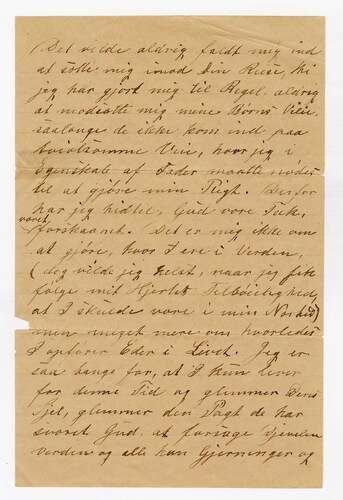 Det vilde aldrig faldt mig ind
at sætte mig imod Din Reise, thi
jeg har gjort mig til Regel, aldrig
at modsætte mig mine Børns Veie,
saalænge de ikke kom ind paa
tvivlsomme Veie, hvor jeg i
Egenskab af Fader maatte nødes
til at gjøre min Pligt. Derfor
har jeg hidtil, Gud være Tak,
været
forskaanet. Det er mig ikke om
at gjøre, hvor I ere i Verden,
(dog vilde jeg helst, naar jeg fik
følge mit Hjertes Tilbøielighed,
at I skulde være i min Nærhed)
men meget mere om hvorledes
I opfører Eder i Livet. Jeg er
saa bange for, at I kun lever
for denne Tid og glemmer Deres
Sjel, glemmer den Pagt de har
svoret Gud at forsage Djævelen
verden og alle hans Gjerninger og